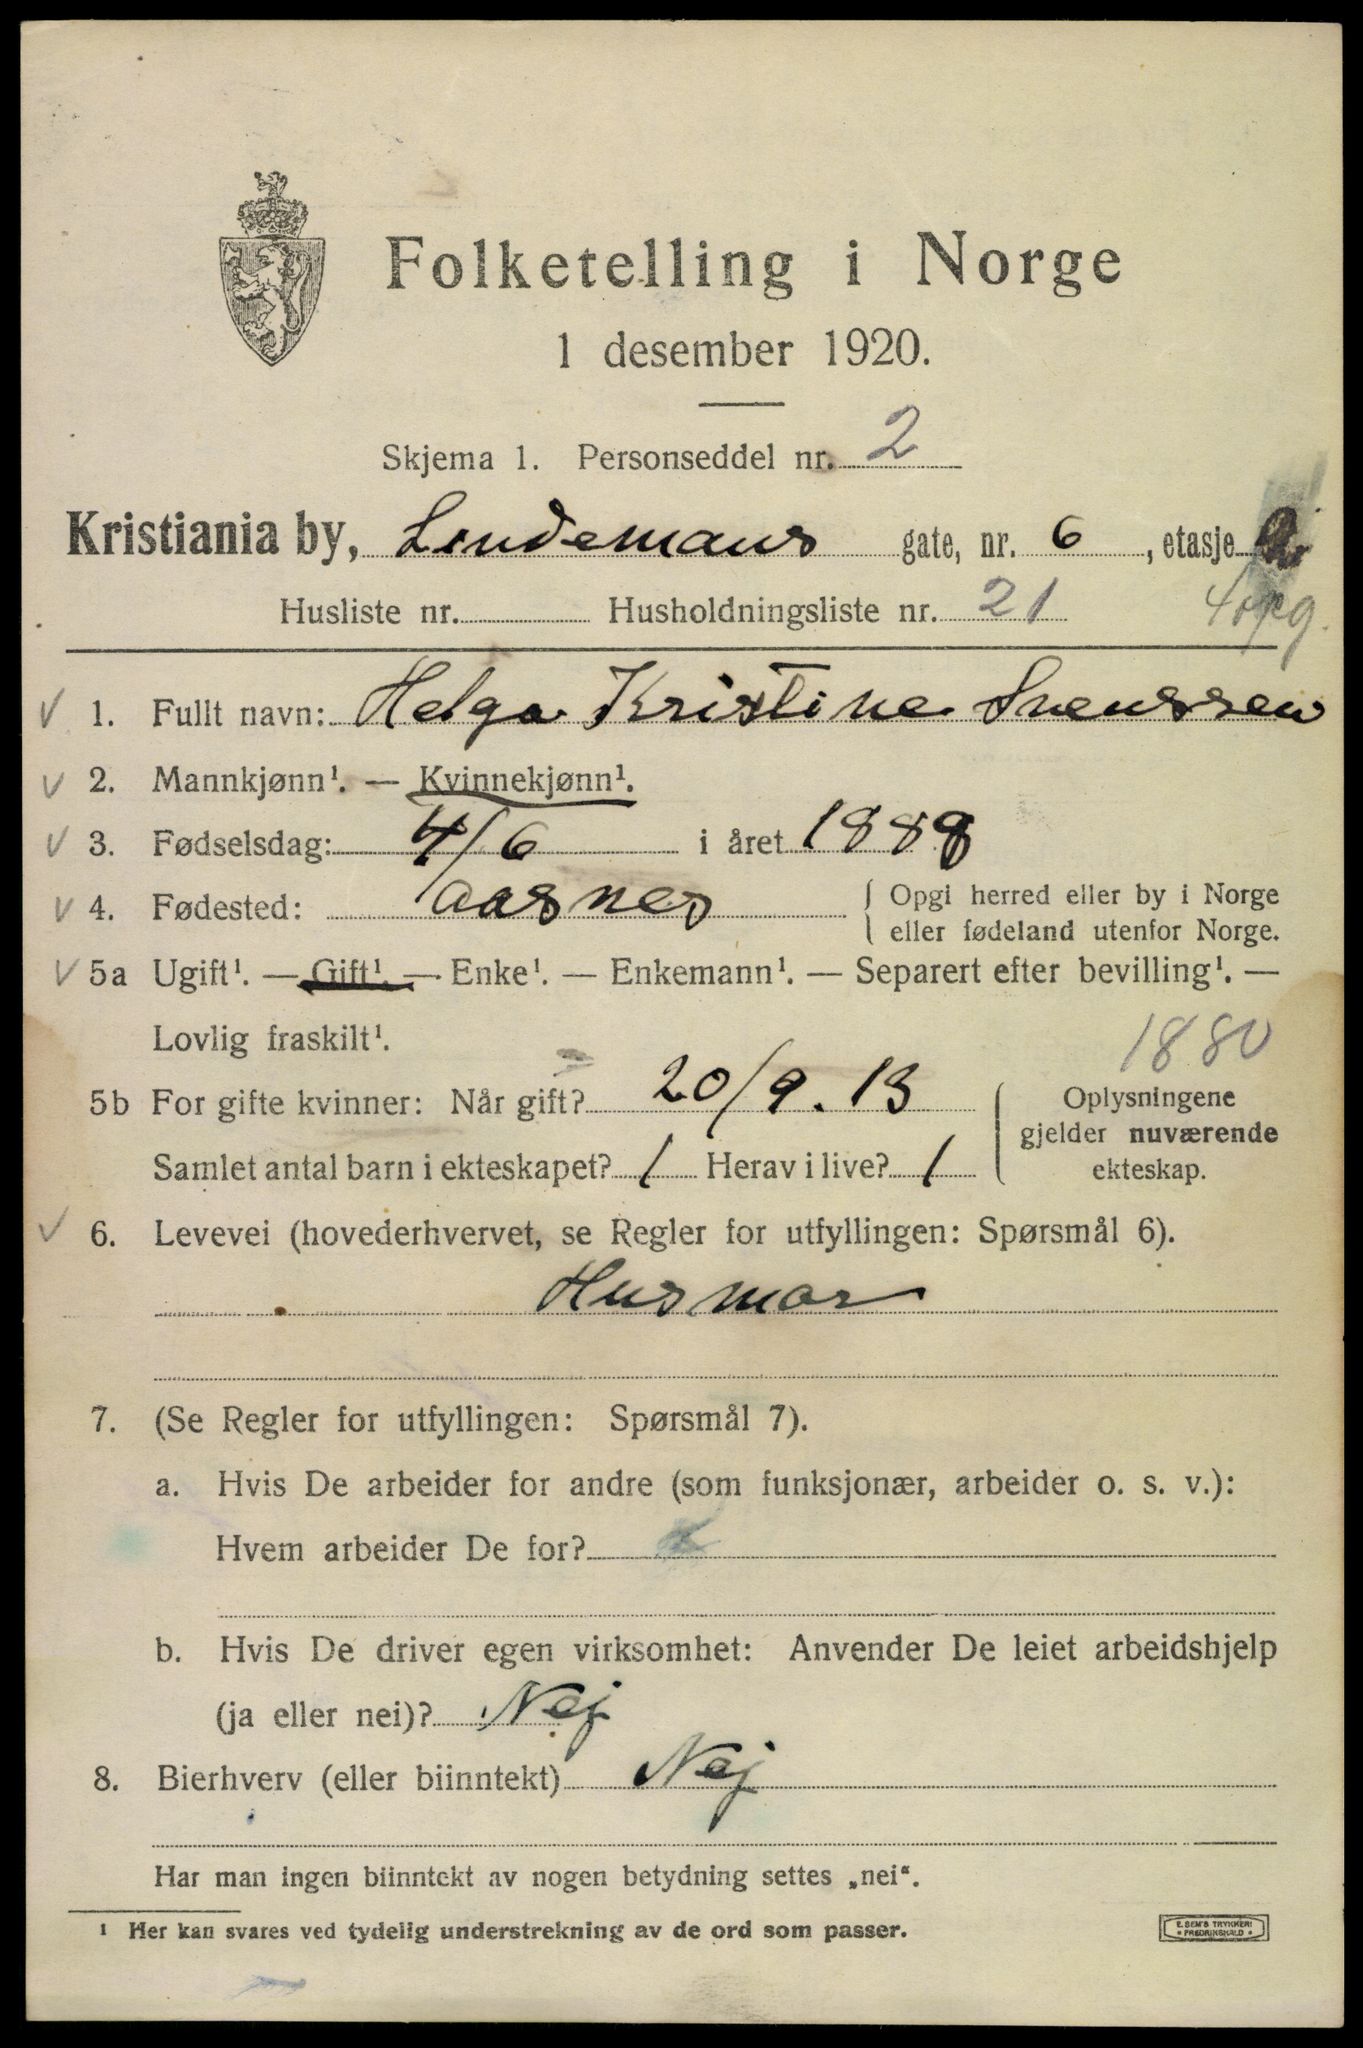 Folketelling i Norge
1 desember 1920.
Skjema 1. Personseddel nr. 2
Kristiania by, Lindemans gate, nr. 6, etasje
Husliste nr. Husholdningsliste nr. 21 4 opg.
1. Fullt navn: Helga Kristine Svenssen
2. Mannkjønn¹. — Kvinnekjønn¹.
3. Fødselsdag: 4/6 i året 1888
4. Fødested: Aasnes { Opgi herred eller by i Norge
eller fødeland utenfor Norge.
5a Ugift¹. — Gift¹. — Enke¹. — Enkemann¹. — Separert efter bevilling¹. —
Lovlig fraskilt¹. 1880
5b For gifte kvinner: Når gift? 20/9.13 Oplysningene
gjelder nuværende
Samlet antal barn i ekteskapet? 1 Herav i live? 1 ekteskap.
6. Levevei (hovederhvervet, se Regler for utfyllingen: Spørsmål 6).
Husmor
7. (Se Regler for utfyllingen: Spørsmål 7).
a. Hvis De arbeider for andre (som funksjonær, arbeider o. s. v.):
Hvem arbeider De for?
b. Hvis De driver egen virksomhet: Anvender De leiet arbeidshjelp
(ja eller nei)? Nej
8. Bierhverv (eller biinntekt) Nej
Har man ingen biinntekt av nogen betydning settes „nei“.
¹ Her kan svares ved tydelig understrekning av de ord som passer.
E. SEM'S TRYKKERI
FREDRIKSHALD